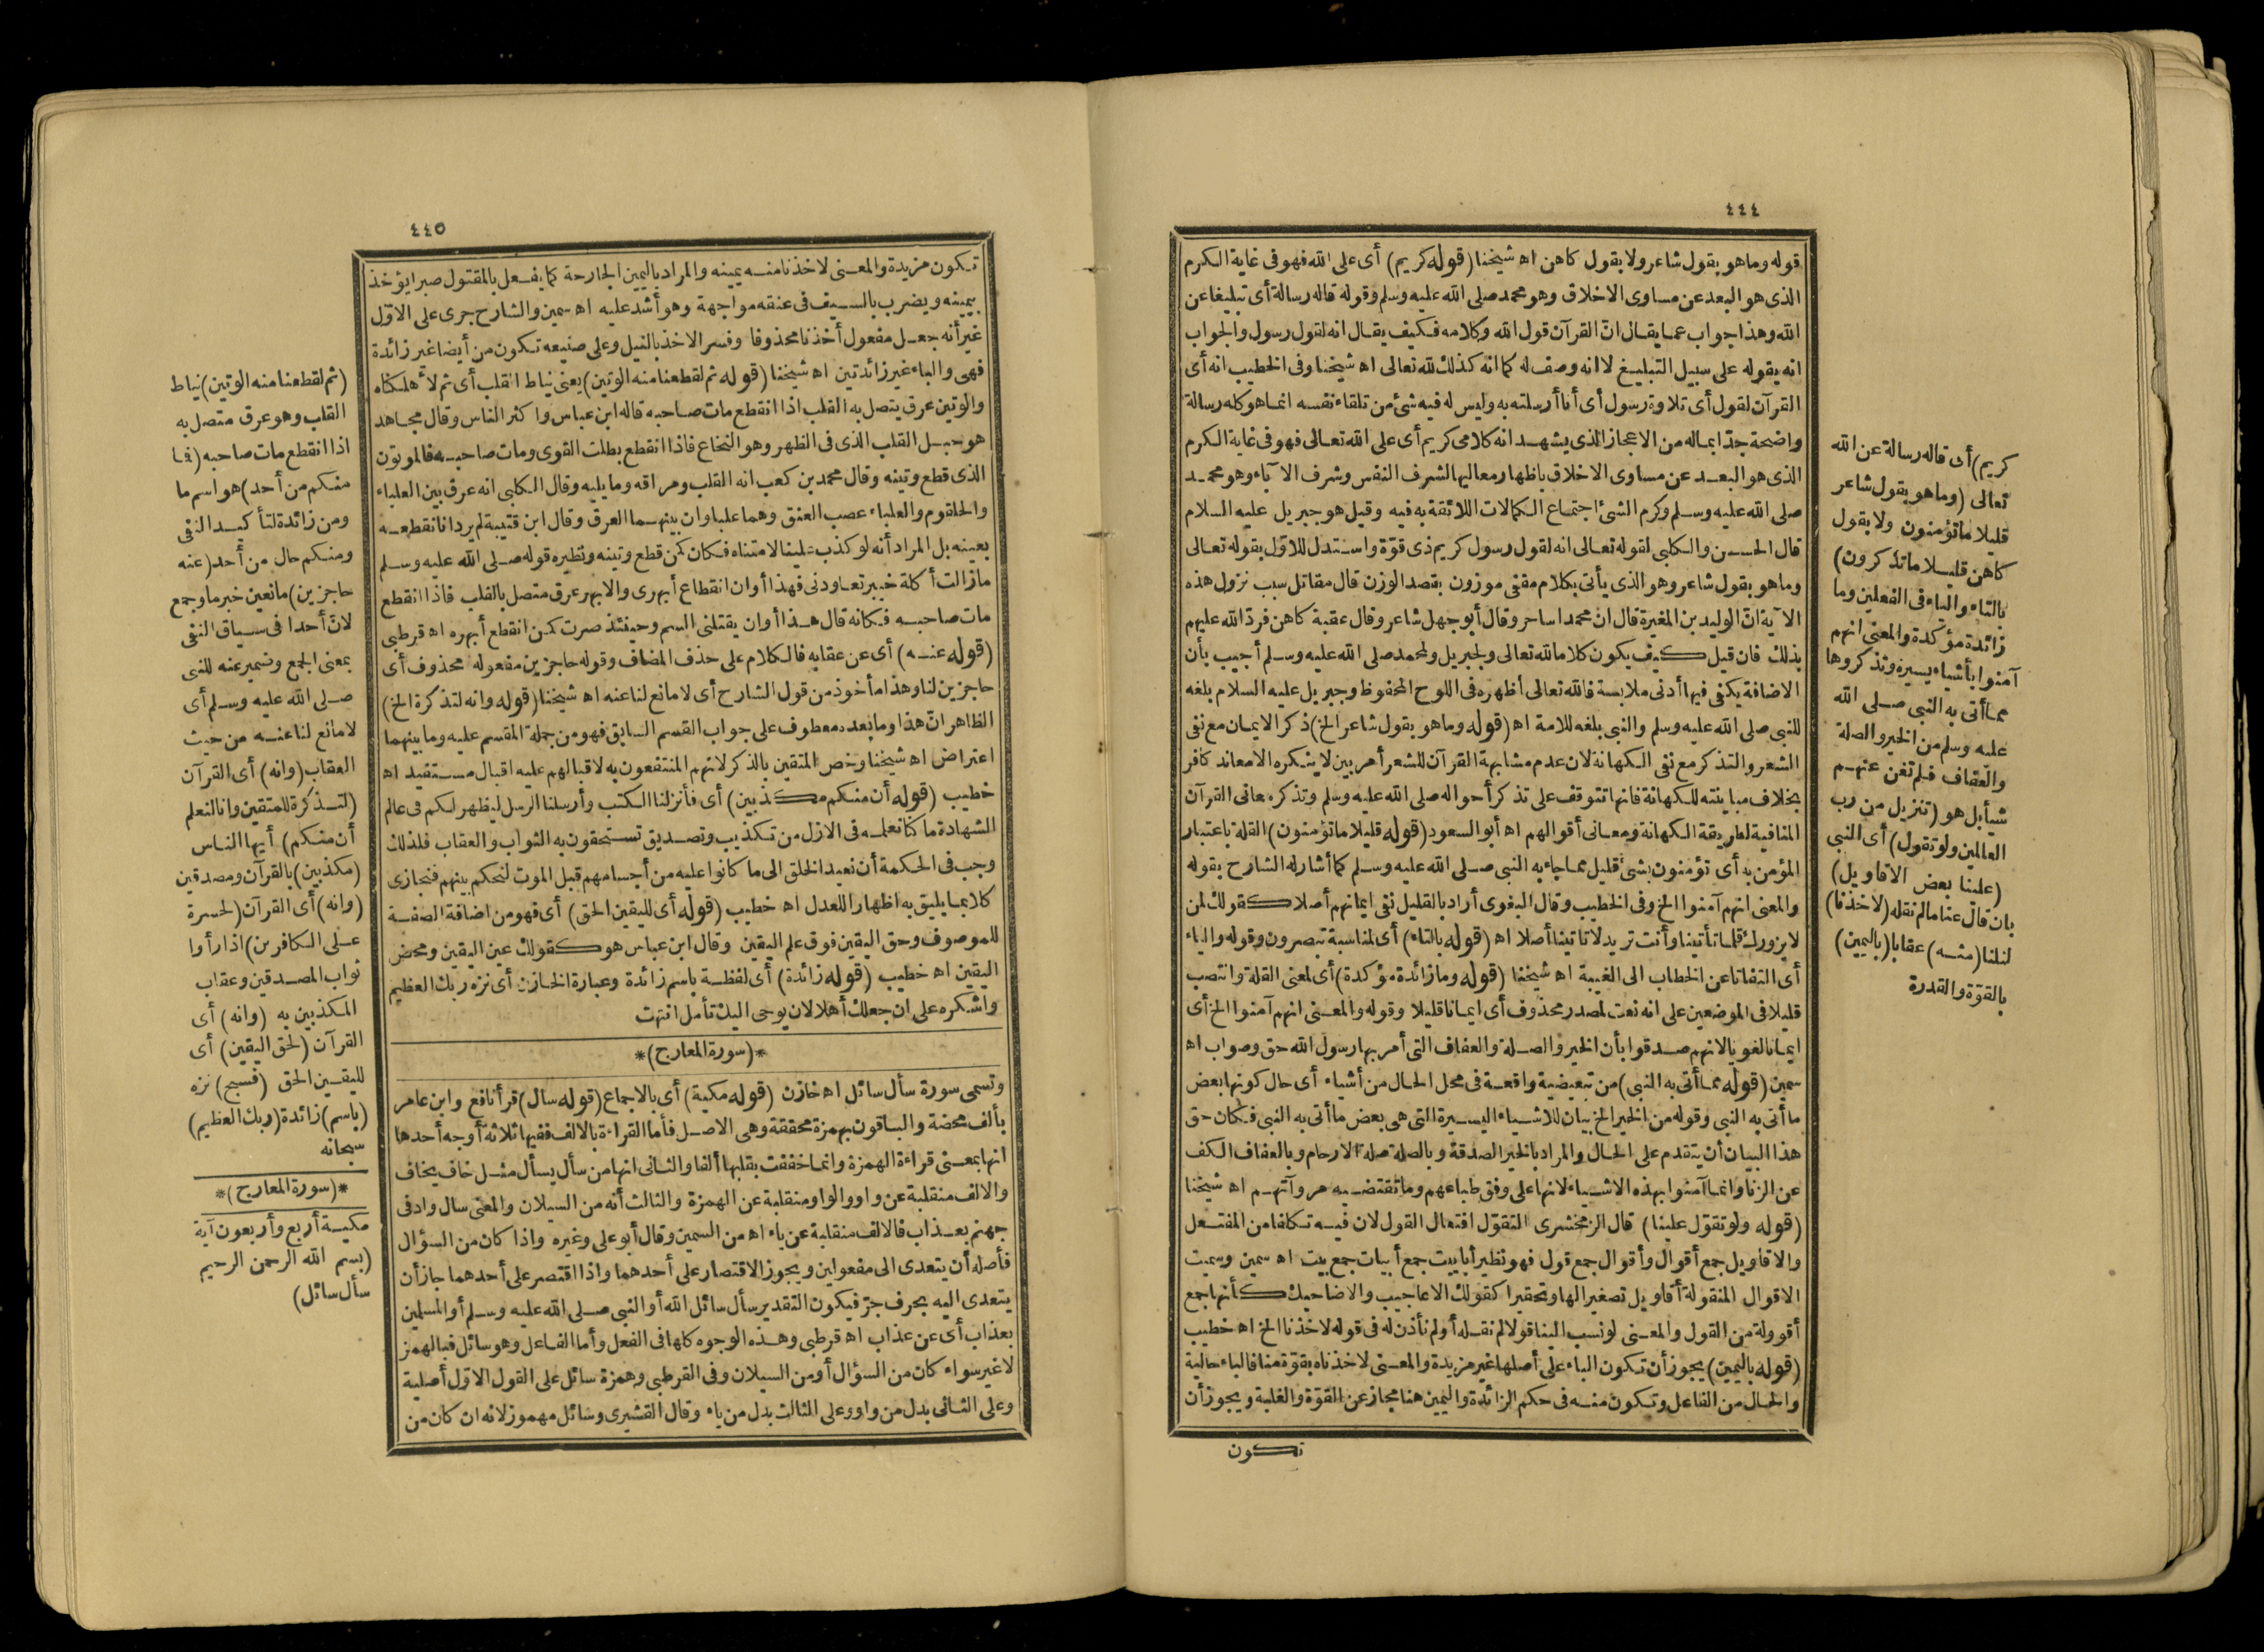 ٤٤٤
قوله وما هو بقول شاعر ولا بقول كاهن اه شيخنا (قوله كريم) أى على الله فهو فى غاية الكرم
الذى هو البعد عن مساوى الاخلاق وهو محمد صلى الله عليه وسلم وقوله قاله رسالة أى تبليغا عن
الله وهذا جواب عما يقال انّ القرآن قول الله وكلامه فكيف يقال انه لقول رسول والجواب
انه يقوله على سبيل التبليغ لا انه وصف له كما انه كذلك لله تعالى اه شيخنا وفى الخطيب انه أى
القرآن لقول أى تلاوة رسول أى أنا أرسلته به وليس له فيه شئ من تلقاء نفسه انما هو كله رسالة
واضحة جدّا بماله من الاعجاز الذى يشهد انه كلامى كريم أى على الله تعالى فهو فى غاية الكرم
الذى هو البعد عن مساوى الاخلاق باظهار معاليها لشرف النفس وشرف الا باء وهو محمد
صلى الله عليه وسلم وكرم الشئ اجتماع الكمالات اللائقة به فيه وقيل هو جبريل عليه السلام
قال الحسن والكلبى لقوله تعالى انه لقول رسول كريم ذى قوّة واستدل للاوّل بقوله تعالى
وما هو بقول شاعر وهو الذى يأتى بكلام مقفى موزون بقصد الوزن قال مقاتل سبب نزول هذه
الآية انّ الوليد بن المغيرة قال ان محمدا ساحر وقال أبو جهل شاعر وقال عقبة كاهن فردّ الله عليهم
بذلك فان قيل كيف يكون كلاما لله تعالى ولجبريل ولمحمد صلى الله عليه وسلم أجيب بأن
الاضافة يكفى فيها أدنى ملابسة فالله تعالى أظهره فى اللوح المحفوظ وجبريل عليه السلام بلغه
للنبى صلى الله عليه وسلم والنبى بلغه للامة اه (قوله وما هو بقول شاعر الخ) ذكر الايمان مع نفى
الشعر والتذكر مع نفى الكهانة لان عدم مشابهة القرآن للشعر أمر بين لا ينكره الا معاند كافر
بخلاف مباينته للكهانة فانها تتوقف على تذكر أحواله صلى الله عليه وسلم وتذكر معانى القرآن
المنافية لطريقة الكهانة ومعانى أقوالهم اه أبو السعود (قوله قليلا ما تؤمنون) القلة باعتبار
المؤمن به أى تؤمنون بشئ قليل مما جاء به النبى صلى الله عليه وسلم كما أشار له الشارح بقوله
والمعنى انهم آمنوا الخ وفى الخطيب وقال البغوى أراد بالقليل نفى ايمانهم أصلا كقولك لمن
لا يزورك قلما تأتينا وأنت تريد لا تأتينا أصلا اه (قوله بالتاء) أى لمناسبة تبصرون وقوله والياء
أى التفاتا عن الخطاب الى الغيبة اه شيخنا (قوله وما زائدة مؤكدة) أى لمعنى القلة وانتصب
قليلا فى الموضعين على انه نعت لمصدر محذوف أى ايمانا قليلا وقوله والمعنى انهم آمنوا الخ أى
ايمانا لغويا لانهم صدقوا بأن الخير والصلة والعفاف التى أمر بها رسول الله حق وصواب اه
سمين (قوله مما أتى به النبى) من تبعيضية واقعة فى محل الحال من أشياء أى حال كونها بعض
ما أتى به النبى وقوله من الخير الخ بيان للاشياء اليسيرة التى هى بعض ما أتى به النبى فكان حق
هذا البيان أن يتقدم على الحال والمراد بالخير الصدقة وبالصلة صلة الارحام وبالعفاف الكف
عن الزنا وانما آمنوا بهذه الاشياء لانها على وفق طباعهم وما تقتضيه مروآتهم اه شيخنا
(قوله ولو تقوّل علينا) قال الزمخشرى التقوّل افتعال القول لان فيه تكلفا من المفتعل
والاقاويل جمع أقوال وأقوال جمع قول فهو نظير أبابيت جمع أبيات جمع بيت اه سمين وسميت
الاقوال المنقولة أقاويل تصغيرا لها وتحقيرا كقولك الاعاجيب والاضاحيك كأنها جمع
أقوولة من القول والمعنى لو نسب الينا قولا لم نقله أو لم نأذن له فى قوله لاخذنا الخ اه خطيب
(قوله باليمين) يجوز أن تكون الباء على أصلها غير مزيدة والمعنى لاخذناه بقوّة منا فالباء حالية
والحال من الفاعل وتكون منه فى حكم الزائدة واليمين هنا مجاز عن القوّة والغلبة ويجوز أن
تكون
كريم) أى قاله رسالة عن الله
تعالى (وما هو بقول شاعر
قليلا ما تؤمنون ولا بقول
كاهن قليلا ما تذكرون)
بالتاء والياء فى الفعلين وما
زائدة مؤكدة والمعنى انهم
آمنوا بأشياء يسيرة وتذكروها
مما أتى به النبى صلى الله
عليه وسلم من الخير والصلة
والعفاف فلم تغن عنهم
شيأ بل هو (تنزيل من رب
العالمين ولو تقول) أى النبى
(علينا بعض الاقاويل)
بان قال عنا ما لم نقله (لاخذنا)
لنلنا (منه) عقابا (باليمين)
بالقوّة والقدرة
٤٤٥
تكون مزيدة والمعنى لاخذنا منه يمينه والمراد باليمين الجارحة كما يفعل بالمقتول صبرا يؤخذ
بيمينه ويضرب بالسيف فى عنقه مواجهة وهو أشد عليه اه سمين والشارح جرى على الاوّل
غير أنه جعل مفعول أخذنا محذوفا وفسر الاخذ بالنيل وعلى صنيعه تكون من أيضا غير زائدة
فهى والباء غير زائدتين اه شيخنا (قوله ثم لقطعنا منه الوتين) يعنى نياط القلب أى ثم لأهلكناه
والوتين عرق يتصل به القلب اذا انقطع مات صاحبه قاله ابن عباس واكثر الناس وقال مجاهد
هو حبل القلب الذى فى الظهر وهو النخاع فاذا انقطع بطلت القوى ومات صاحبه فالموتون
الذى قطع وتينه وقال محمد بن كعب انه القلب ومراقه وما يليه وقال الكلبى انه عرق بين العلباء
والحلقوم والعلباء عصب العنق وهما علباوان بينهما العرق وقال ابن قتيبة لم يرد انا نقطعه
بعينه بل المراد أنه لو كذب علينا لامتناه فكان كمن قطع وتينه ونظيره قوله صلى الله عليه وسلم
ما زالت أكلة خيبر تعاودنى فهذا أوان انقطاع أبهرى والابهر عرق متصل بالقلب فاذا انقطع
مات صاحبه فكانه قال هذا أوان يقتلنى السم وحينئذ صرت كمن انقطع أبهره اه قرطبى
(قوله عنه) أى عن عقابه فالكلام على حذف المضاف وقوله حاجزين مفعوله محذوف أى
حاجزين لنا وهذا مأخوذ من قول الشارح أى لا مانع لنا عنه اه شيخنا (قوله وانه لتذكرة الخ)
الظاهر انّ هذا وما بعده معطوف على جواب القسم السابق فهو من جملة المقسم عليه وما بينهما
اعتراض اه شيخنا وخص المتقين بالذكر لانهم المنتفعون به لاقبالهم عليه اقبال مستفيد اه
خطيب (قوله أن منكم مكذبين) أى فأنزلنا الكتب وأرسلنا الرسل ليظهر لكم فى عالم
الشهادة ما كنا نعلمه فى الازل من تكذيب وتصديق تستحقون به الثواب والعقاب فلذلك
وجب فى الحكمة أن نعيد الخلق الى ما كانوا عليه من أجسامهم قبل الموت لنحكم بينهم فنجازى
كلا بما يليق به اظهارا للعدل اه خطيب (قوله أى لليقين الحق) أى فهو من اضافة الصفة
للموصوف وحق اليقين فوق علم اليقين وقال ابن عباس هو كقولك عين اليقين ومحض
اليقين اه خطيب (قوله زائدة) أى لفظة باسم زائدة وعبارة الخازن أى نزه ربك العظيم
واشكره على ان جعلك أهلا لان يوحى اليك تأمل انتهت
*(سورة المعارج)*
وتسمى سورة سأل سائل اه خازن (قوله مكية) أى بالاجماع (قوله سال) قرأ نافع وابن عامر
بألف محضة والباقون بهمزة محققة وهى الاصل فأما القراءة بالالف ففيها ثلاثة أوجه أحدها
انها بمعنى قراءة الهمزة وانما خففت بقلبها ألفا والثانى انها من سأل يسأل مثل خاف يخاف
والالف منقلبة عن واو والواو منقلبة عن الهمزة والثالث أنه من السيلان والمعنى سال واد فى
جهنم بعذاب فالالف منقلبة عن ياء اه من السمين وقال أبو على وغيره واذا كان من السؤال
فأصله أن يتعدى الى مفعولين ويجوز الاقتصار على أحدهما واذا اقتصر على أحدهما جاز أن
يتعدى اليه بحرف جرّ فيكون التقدير سأل سائل الله أو النبى صلى الله عليه وسلم أو المسلمين
بعذاب أى عن عذاب اه قرطبى وهذه الوجوه كلها فى الفعل وأما الفاعل وهو سائل فبالهمز
لا غير سواء كان من السؤال أو من السيلان وفى القرطبى وهمزة سائل على القول الاوّل أصلية
وعلى الثانى بدل من واو وعلى الثالث بدل من ياء وقال القشيرى وسائل مهموز لانه ان كان من
(ثم لقطعنا منه الوتين) نياط
القلب وهو عرق متصل به
اذا انقطع مات صاحبه (فما
منكم من أحد) هو اسم ما
ومن زائدة لتأكيد النفى
ومنكم حال من أحد (عنه
حاجزين) مانعين خبر ما وجمع
لانّ أحدا فى سياق النفى
بمعنى الجمع وضمير عنه للنبى
صلى الله عليه وسلم أى
لا مانع لنا عنه من حيث
العقاب (وانه) أى القرآن
(لتذكرة للمتقين وانا لنعلم
أن منكم) أيها الناس
(مكذبين) بالقرآن ومصدقين
(وانه) أى القرآن (لحسرة
على الكافرين) اذا رأوا
ثواب المصدقين وعقاب
المكذبين به (وانه) أى
القرآن (لحق اليقين) أى
لليقين الحق (فسبح) نزه
(باسم) زائدة (ربك العظيم)
سبحانه
*(سورة المعارج)*
مكية أربع وأربعون آية
(بسم الله الرحمن الرحيم
سأل سائل)